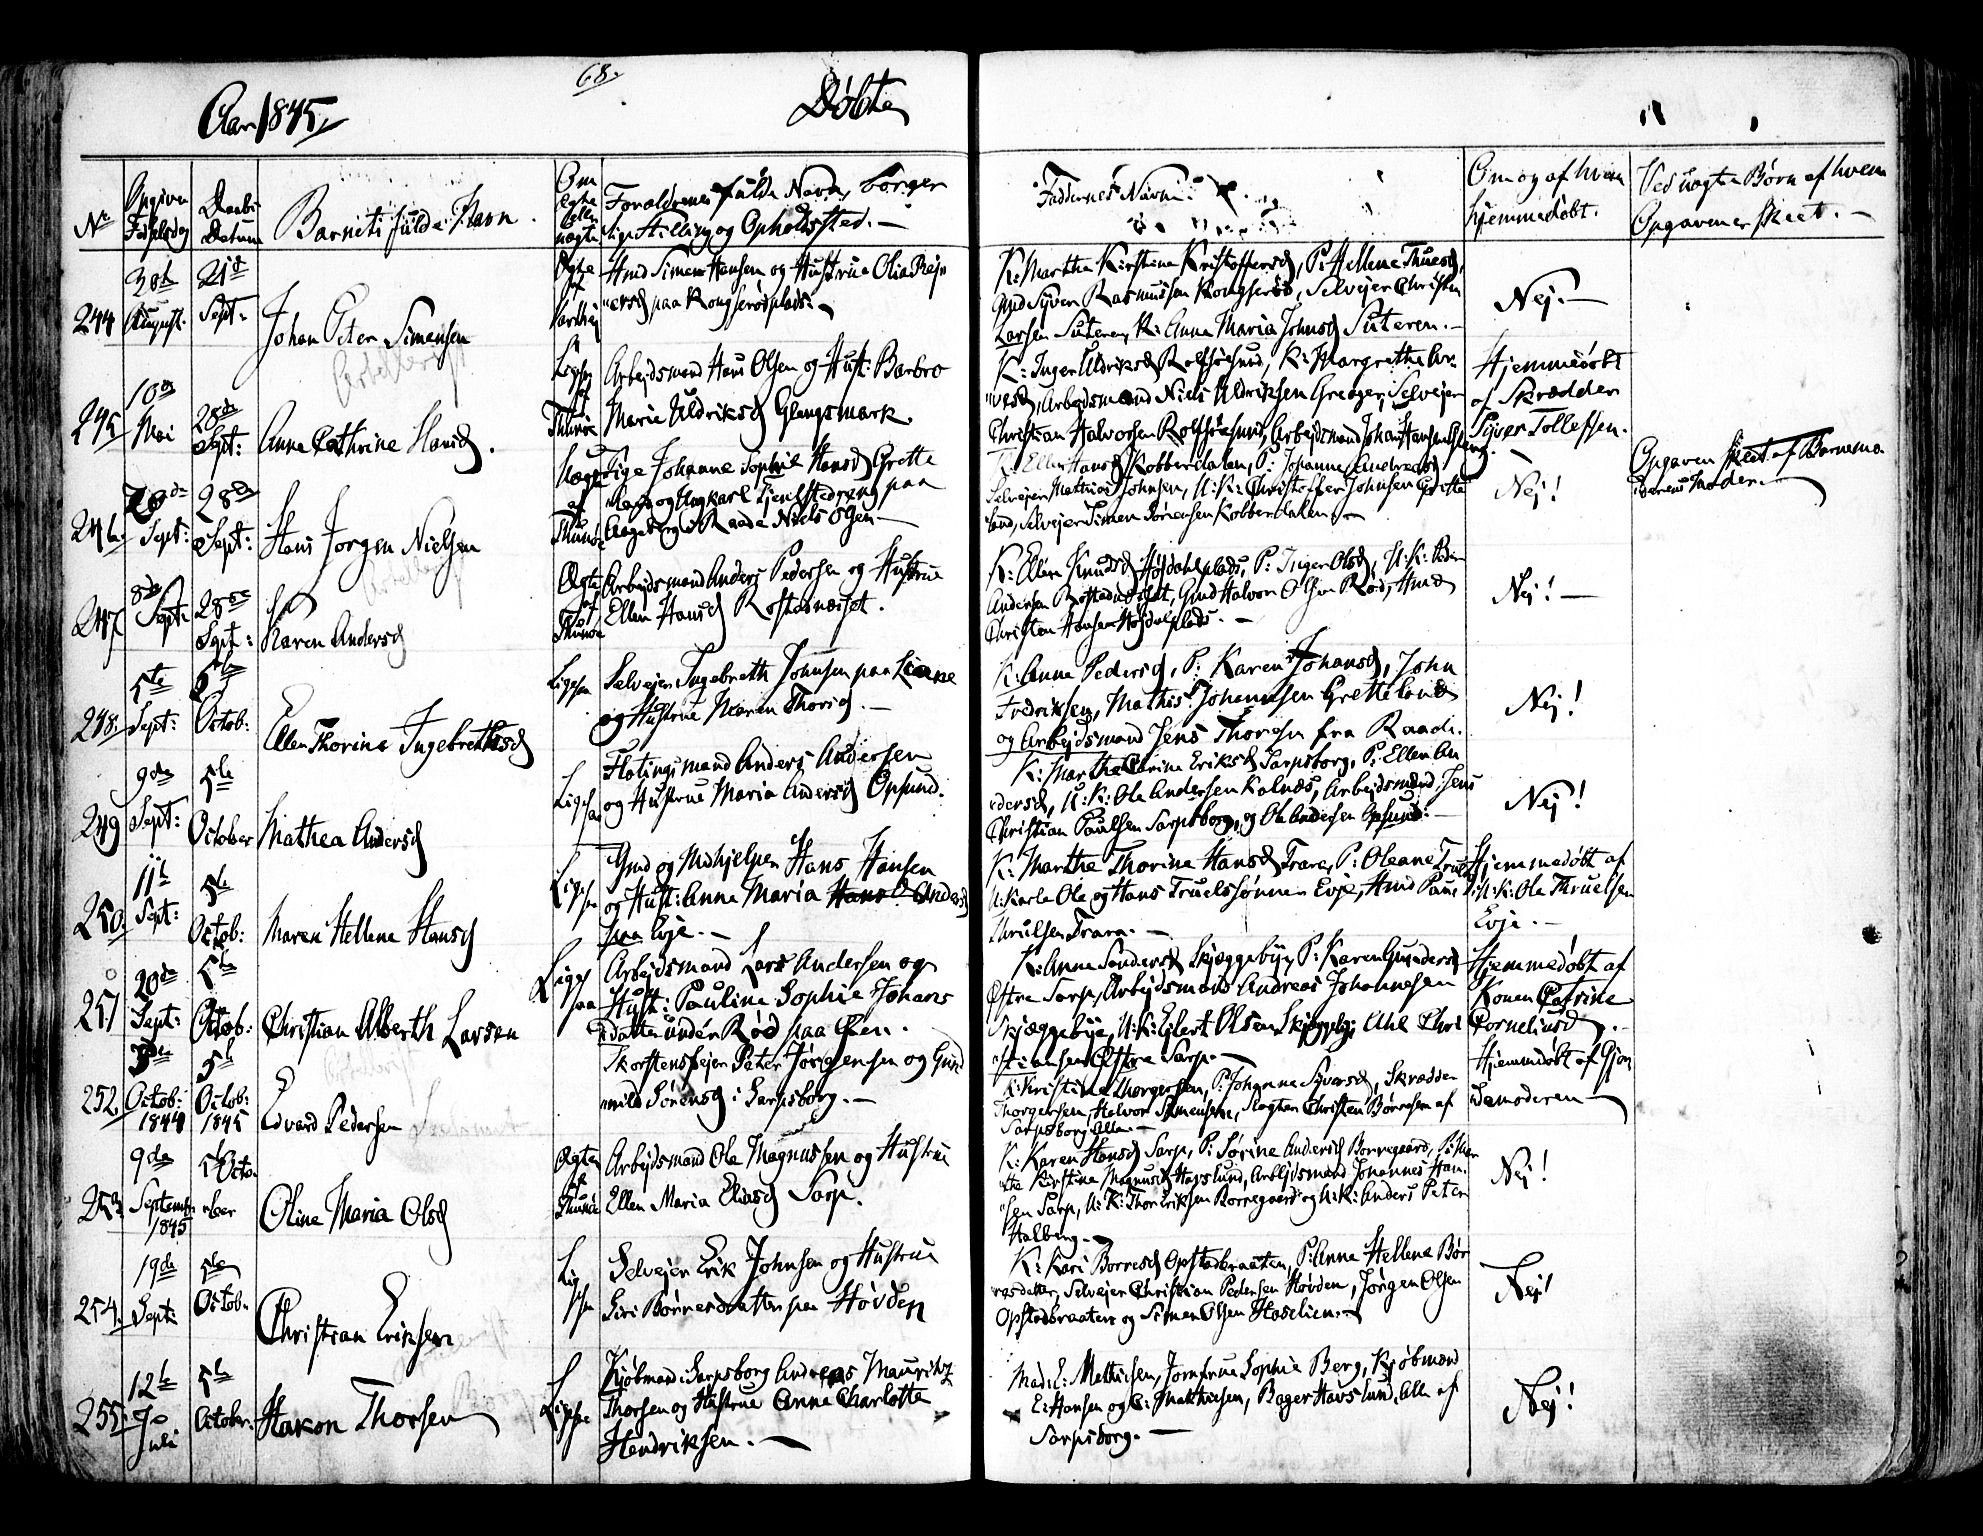 68.
Aar 1845.
Døbte
No
Opgiven Fødselsdag
Daabs Datum
Barnets fulde Navn.
Om ægte eller uægte
Forældrenes fulde Navn, borger
lige Stilling og Opholdssted. —
Faddernes Navn.
Om og af hvem
hjemmedøbt.
Ved uægte Børn af hvem
Opgaven er skeet. —
244
28de August.
21de Sept:
Johan Peter Simensen
Ægte af
Hmd Simen Hansen og Hustrue Olia Rejn
ersd paa Kongserødplads. —
K: Marthe Kirstine Kristoffersd, P: Hellene Thuesd,
Gmd Syver Rasmussen Kongserød, Selvejer Christen
Larsen Suteren, K: Anna Maria Johnsd Suteren. —
Nej. —
245
10de Mai
28de Sept:
Anne Cathrine Hansd.
Ligesaa af Thunøe
Arbejdsmand Hans Olsen og Hust: Barbro
Marie Uldriksd Glengsmark.
K: Inger Uldriksd Rolfsøesund, K: Margrethe
Arbejdsmand Niels Uldriksen Greager, Selvejer
Christian Halvorsen Rolfsøesund, Arbejdsmand Johan Hansen
Hjemmedøbt
af Skrædder
Syver Tollefsen.
246.
20de Sept:
28de Sept:
Hans Jørgen Nielsen
Uægte af Thunøe
Pige Johanne Sophie Hansd Grette
og Ungkarl tjenstedreng paa
Aageberg i Raade Niels Olsen —
K: Ellen Hansd Kobberdalen, P: Johanne Andreasd
Selvejer Mathias Johnsen, U: K: Christoffer Johnsen Grette
land, Selvejer Simen Sørensen Kobberdalen. —
Nej!
Opgaven skeet af Barnemo
derens Moder. —
247.
8de Sept:
28de Sept:
Karen Andersd
Ægte af Thunøe
Arbejdsmand Anders Pedersen og Hustrue
Ellen Hansd Rostadnæiset.
K: Ellen Knudsd Højdahlplads, P: Inger Olsd, U: K: Peder
Andersen Rostadnæiset, Gmd Halvor Olsen Rød, Hmd
Christen Hansen Højdalplads. —
Nej! —
248.
5te Sept:
5te Octob:
Ellen Thorine Ingebrethsd
Ligesaa
Selvejer Ingebreth Johnsen paa Liane
og Hustrue Maren Thorsd. —
K: Anne Pedersd, P: Karen Johansd, John
Fredriksen, Mathis Johannesen Gretteland
og Arbejdsmand Jens Thorsen fra Raade.
Nej!
249
9de Sept:
5te October
Mathea Andersd
Ligesaa
Flotingsmand Anders Andersen
og Hustrue Maria Andersd Opsund.
K: Marthe Carine Eriksd Sarpsborg, P: Ellen An
dersd, U: K: Ole Andersen Kalnæs, Arbejdsmand Jens
Christian Paulsen Sarpsborg, og Ole Andersen Opsund. —
Nej!
250.
11te Sept:
5te Octob:
Maren Hellene Hansd
Ligesaa
Gmd og Medhjelper Hans Hansen
og Hust: Anna Maria Hansd Andersd
paa Evje. —
K: Marthe Thorine Hansd Trara, P: Oleane Truelsd
U: Karle Ole og Hans Truelssønner Evje, Hmd Paul
Thrulsen Trara. —
Hjemmedøbt af
U: K: Ole Thruelsen
Evje. —
251
20de Sept:
5te Octob:
Christian Alberth Larsen
Ligesaa
Arbejdsmand Lars Andersen og
Hust: Pauline Sophie Johans
datter under Rød paa Øen.
K: Anne Sandersd Skjæggebye, P: Karen Gundersd
Østre Sarp, Arbejdsmand Andreas Johannesen
Skjæggebye, U: K: Ejlert Olsen Skjæggeby,
stiansen Østre Sarp. —
Hjemmedøbt af
Konen Catrine
Corneliusd. —
252.
3die Octob: 1844
5te Octob: 1845
Edvard Pedersen
Skorstensfejer Peter Jørgensen og Gun
nild Sørensd i Sarpsborg. —
K: Kristine Thorgersen, P: Johanne Syversd, Skrædder
Thorgersen, Halvor Simensen, Slagter Christen Børresen af
Sarpsborg Alle. —
Hjemmedøbt af Gjor
demoderen —
253
9de September 1845
5te October
Oline Maria Olsd
Ægte af Thunøe
Arbejdsmand Ole Magnussen og Hustrue
Ellen Maria Eliasd Sarp.
K: Karen Hansd Sarp, P: Sørine Andersd Borregaard, P: Mar
the Kirstine Magnusd Hafslund, Arbejdsmand Johannes Han
sen Sarp, U: K: Thor Eriksen Borregaard og U: K: Anders Peter
Halberg. —
Nej!
254.
19de Sept:
5te Octob:
Christian Eriksen
Ligesaa
Selvejer Erik Johnsen og Hustrue
Siri Børresdatter paa Høvden
K: Kari Børresd Opstadbraaten, P: Anne Hellene Bør
resdatter, Selvejer Christian Pedersen Høvden, Jørgen Olsen
Opstadbraaten og Simen Olsen Haselien. —
Nej!
255.
12te Juli
5te October:
Hakon Thorsen
Ligesaa
Kjøbmand i Sarpsborg Andreas Mauritz
Thorsen og Hustrue Anne Charlotte
Hendriksen. —
Mad: E: Mathiesen, Jomfrue Sophie Berg, Kjøbmænd
E: Hansen og C: Mathiesen, Bager Havslund, Alle af
Sarpsborg. —
Nej!